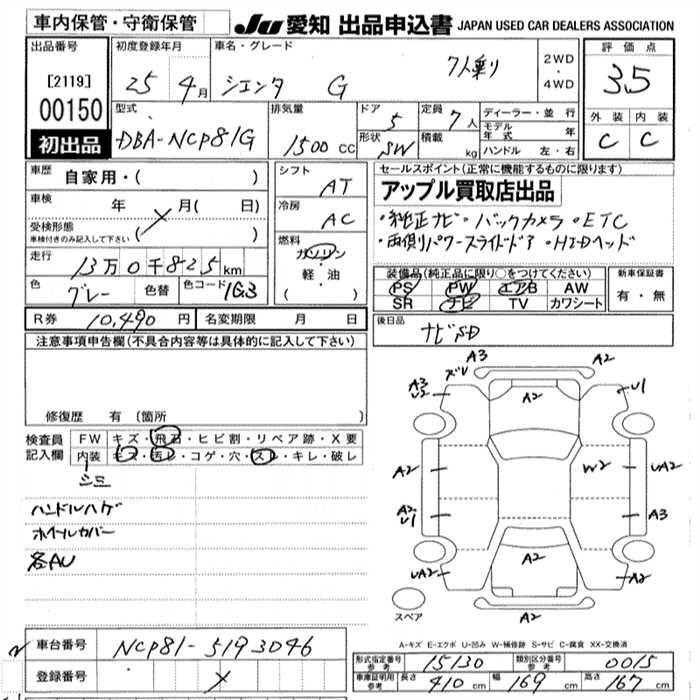 車内保管・守衛保管
JU 愛知 出品申込書 JAPAN USED CAR DEALERS ASSOCIATION
出品番号
[2119]
00150
初出品
初度登録年月
25 4月
車名・グレード
シエンタ G 7人乗り
2WD
・
4WD
評価点
3.5
外装 内装
C C
型式
DBA-NCP81G
排気量
1500 cc
ドア 5
形状 SW
定員 7人
積載 kg
ディーラー・並行
モデル年式 年
ハンドル 左・右
車歴 自家用・( )
車検 年 月( 日)
受検形態
車検付きのみ記入して下さい ( )
走行 13万0千825km
色 グレー 色替 色コード 1G3
シフト AT
冷房 AC
燃料
ガソリン
軽・油
( )
セールスポイント(正常に機能するものに限ります)
アップル買取店出品
・純正ナビ・バックカメラ・ETC
・両側パワースライドドア・HIDヘッド
装備品(純正品に限り○をつけてください)
PS PW エアB AW
SR ナビ TV カワシート
新車保証書
有・無
R券 10,490円 名変期限 月 日
後日品
ナビSD
注意事項申告欄(不具合内容等は具体的に記入して下さい)
修復歴 有 〔箇所 〕
検査員記入欄
FW キズ・飛石・ヒビ割・リペア跡・X要
内装 キズ・汚レ・コゲ・穴・スレ・キレ・破レ
シミ
ハンドルハゲ
ホイールカバー
各AU
A3 A2
A3 U2 ズレ A2 U1
A2 W2 UA2
A2 U1 A3
UA2 A2 A2
A2
スペア
A-キズ E-エクボ U-凹み W-補修跡 S-サビ C-腐食 XX-交換済
車台番号 NCP81-5193046
登録番号
形式指定番号参考 15130 類別区分番号参考 0015
車庫証明用参考 長さ 410cm 幅 169cm 高さ 167cm